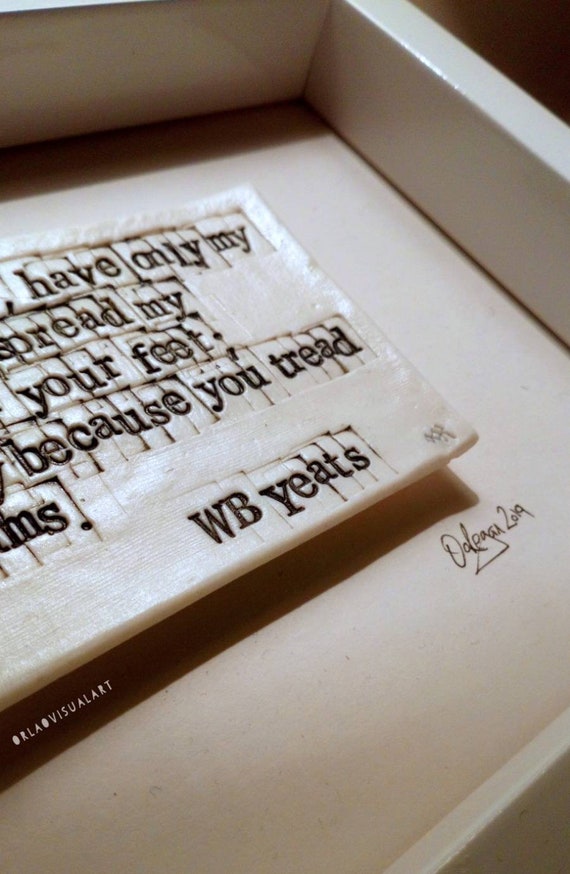 , have only my
spread my
your feet.
because you tread
ms.
WB Yeats
2019
ORLAOVISUALART